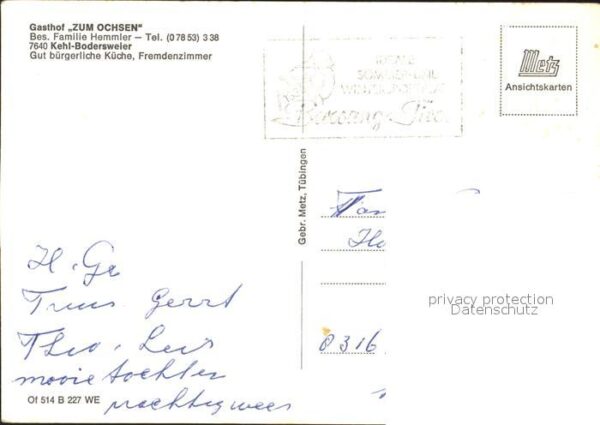 Gasthof „ZUM OCHSEN"
Bes. Familie Hemmler — Tel. (0 78 53) 3 38
7640 Kehl-Bodersweier
Gut bürgerliche Küche, Fremdenzimmer
Metz
Ansichtskarten
Gebr. Metz, Tübingen
H. Gr
Truus Gerrt
Theo - Leis
mooie tochten
prachtig weer
8316
privacy protection
Datenschutz
Of 514 B 227 WE